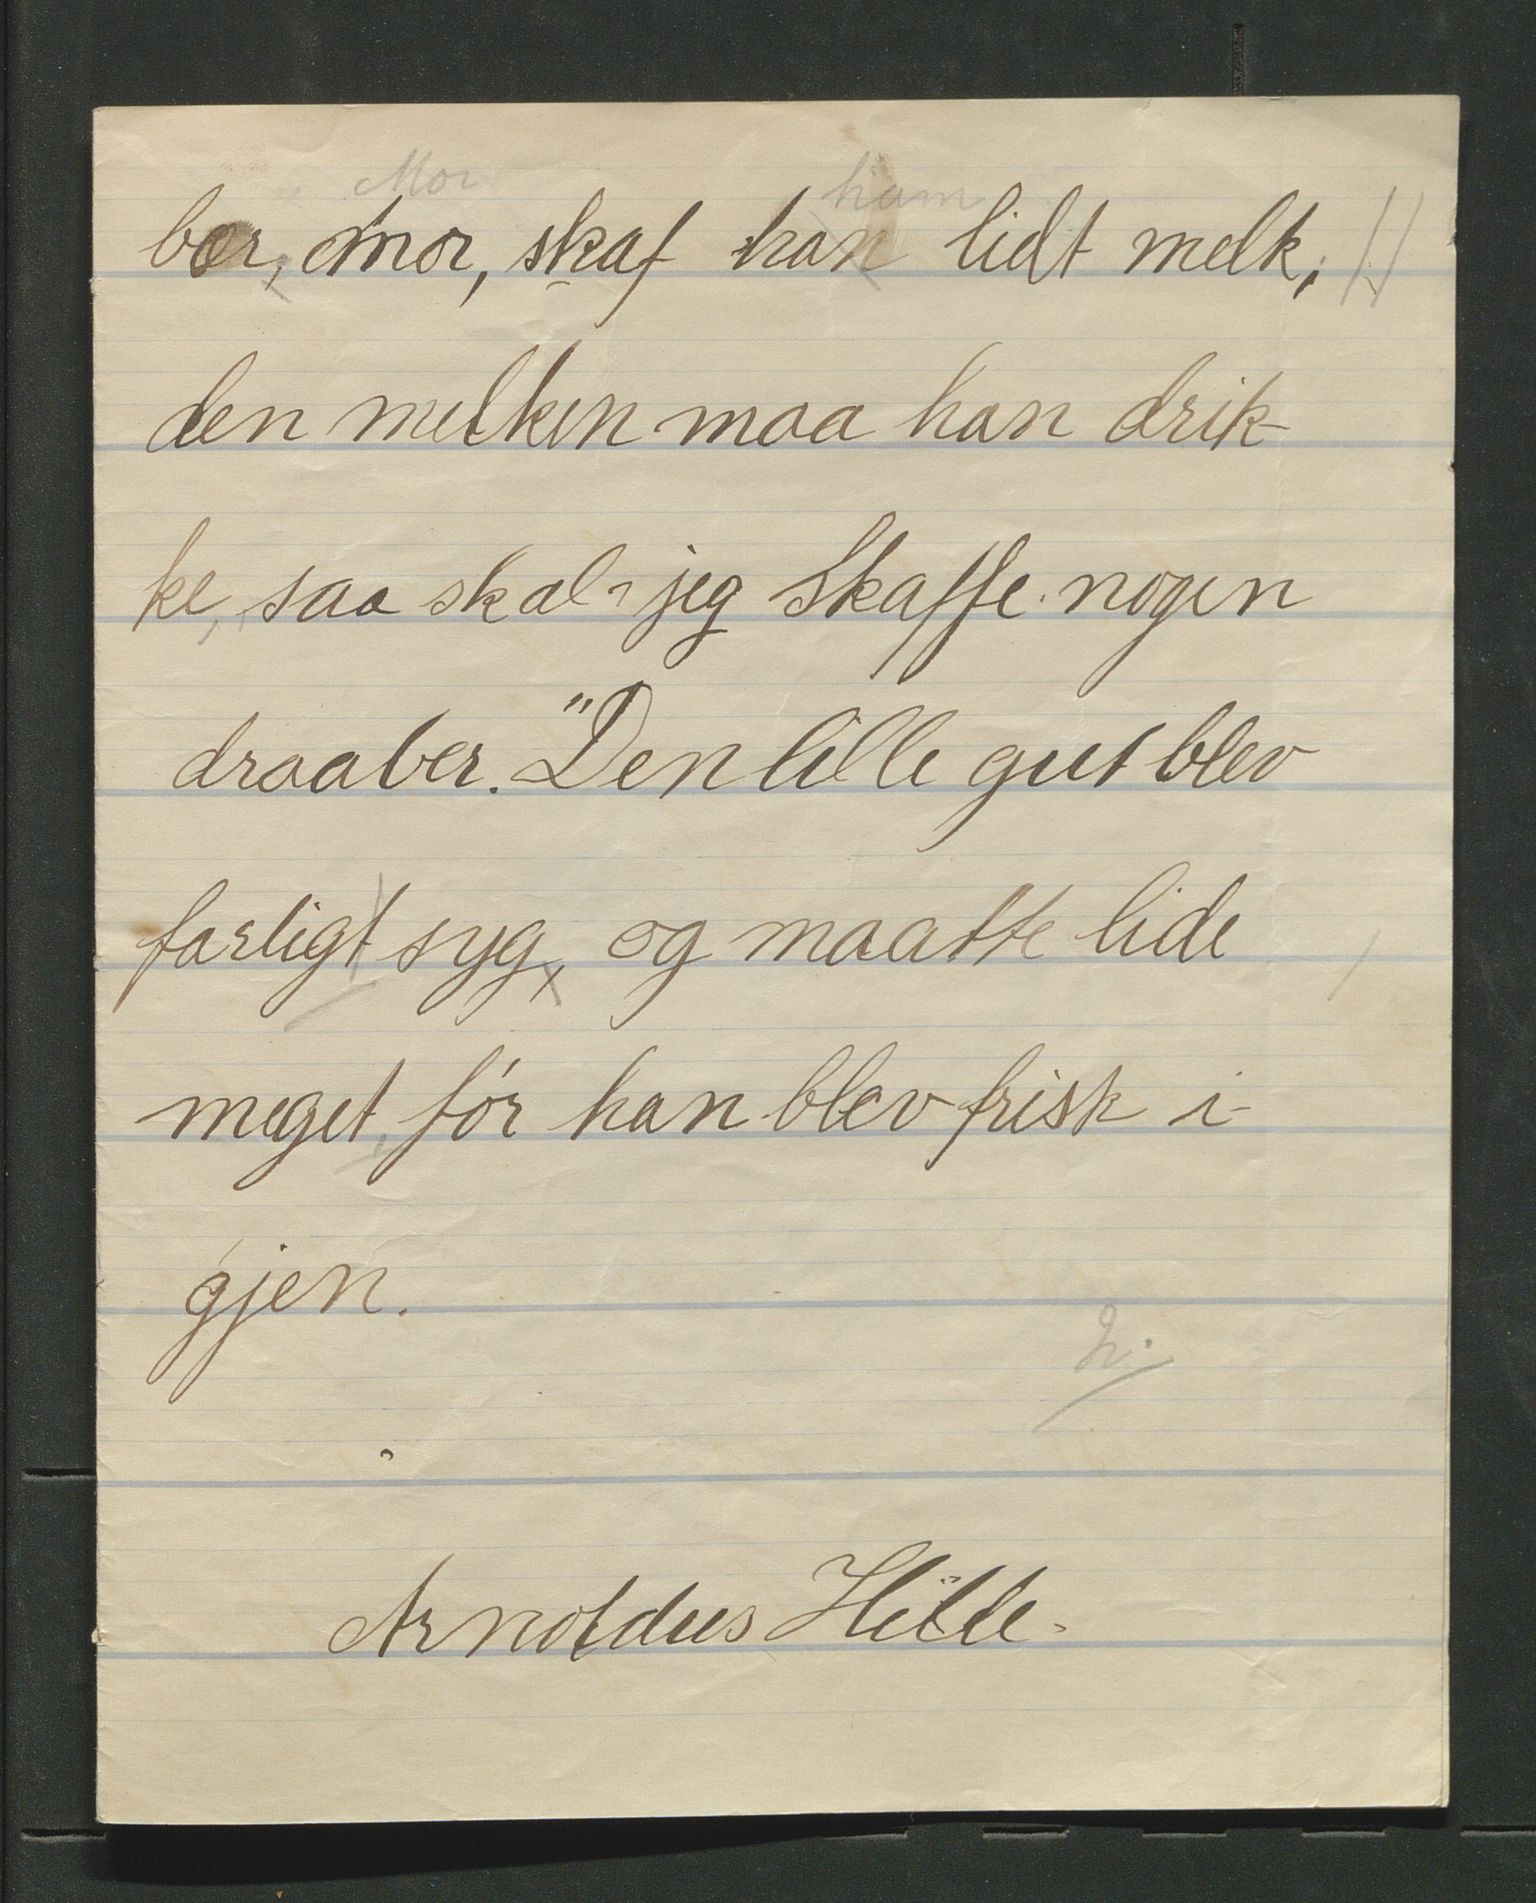 Mor ham
bær, mor, skaf han lidt melk,
den melken maa han drik-
ke, saa skal jeg skaffe nogen
draaber." Den lille gut blev
farligt syg, og maatte lide
meget, før han blev frisk i-
gjen.
Arnoldus Hille.